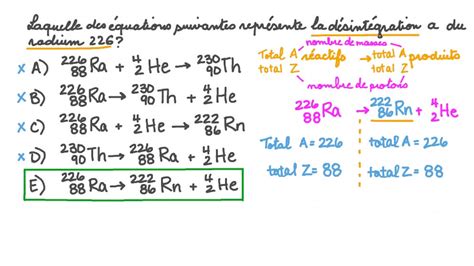 Laquelle des équations suivantes représente la désintégration α du
radium 226?
x A) ²²⁶₈₈Ra + ⁴₂He → ²³⁰₉₀Th
x B) ²²⁶₈₈Ra → ²³⁰₉₀Th + ⁴₂He
x C) ²²⁶₈₈Ra + ⁴₂He → ²²²₈₆Rn
x D) ²³⁰₉₀Th → ²²⁶₈₈Ra + ⁴₂He
E) ²²⁶₈₈Ra → ²²²₈₆Rn + ⁴₂He
nombre de masses
Total A réactifs → Total A produits
total Z total Z
nombre de protons
²²⁶₈₈Ra → ²²²₈₆Rn + ⁴₂He
Total A = 226 Total A = 226
total Z = 88 total Z = 88